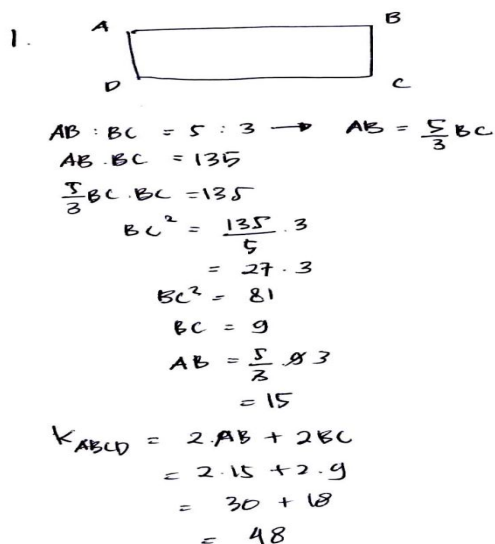 1.
A B
D C
AB : BC = 5 : 3 → AB = 5/3 BC
AB . BC = 135
5/3 BC . BC = 135
BC² = 135/5 . 3
= 27 . 3
BC² = 81
BC = 9
AB = 5/3 . 9 3
= 15
K ABCD = 2.AB + 2BC
= 2.15 + 2.9
= 30 + 18
= 48